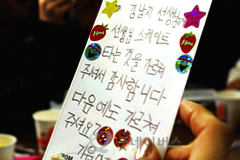 김남지 선생님
선생님 스케이트
타는 것을 가르쳐
주셔서 감사합니다
다음에도 가르쳐
주세요